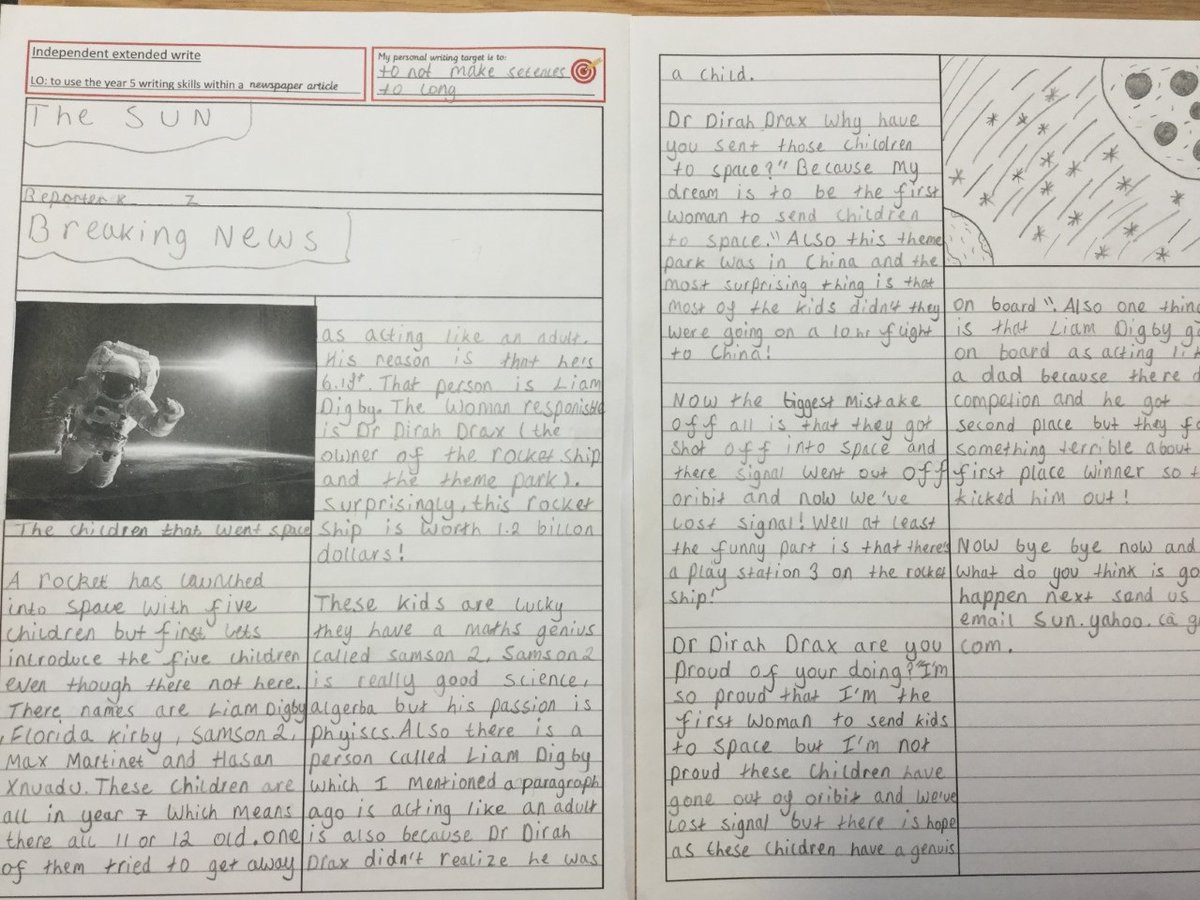 Independent extended write
LO: to use the year 5 writing skills within a newspaper article
My personal writing target is to:
to not make setences
to long
The SUN
Reporter
Breaking News
The children that went space
A rocket has launched
into space with five
children but first lets
introduce the five children
even though there not here.
There names are Liam Digby
, Florida Kirby, Samson 2,
Max Martinet and Hasan
Xnuadu. These children are
all in year 7 which means
there all 11 or 12 old. one
of them tried to get away
as acting like an adult.
His reason is that he's
That person is Liam
Digby. The Woman
is Dr Dirah Drax (the
owner of the rocket ship
and the theme park).
Surprisingly, this rocket
ship is worth 1.2 billon
dollars!
These kids are lucky
they have a maths genius
called samson 2. Samson 2
is really good science,
algerba but his passion is
Phyiscs. Also there is a
person called Liam Digby
which I mentioned a paragraph
ago is acting like an adult
is also because Dr Dirah
Drax didn't realize he was
a child.
Dr Dirah Drax why have
you sent those children
to space?" Because my
dream is to be the first
woman to send children
to space." Also this theme
park was in China and the
most surprising thing is that
most of the kids didn't they
were going on a 10 hr flight
to China!
Now the biggest mistake
off all is that they got
shot off into space and
there signal went out off
oribit and now we've
lost signal! Well at least
the funny part is that there's
a play station 3 on the rocket
ship!
Dr Dirah Drax are you
proud of your doing?"I'm
so proud that I'm the
first woman to send kids
to space but I'm not
proud these children have
gone out of oribit and we've
lost signal but there is hope
as these children have a genuis
on board". Also one thing
is that Liam Digby
on board as acting
a dad because there
competion and he got
second place but they
something terrible about
first place winner so
kicked him out!
Now bye bye now and
what do you think is
happen next send us
email Sun.yahoo.ca
com.